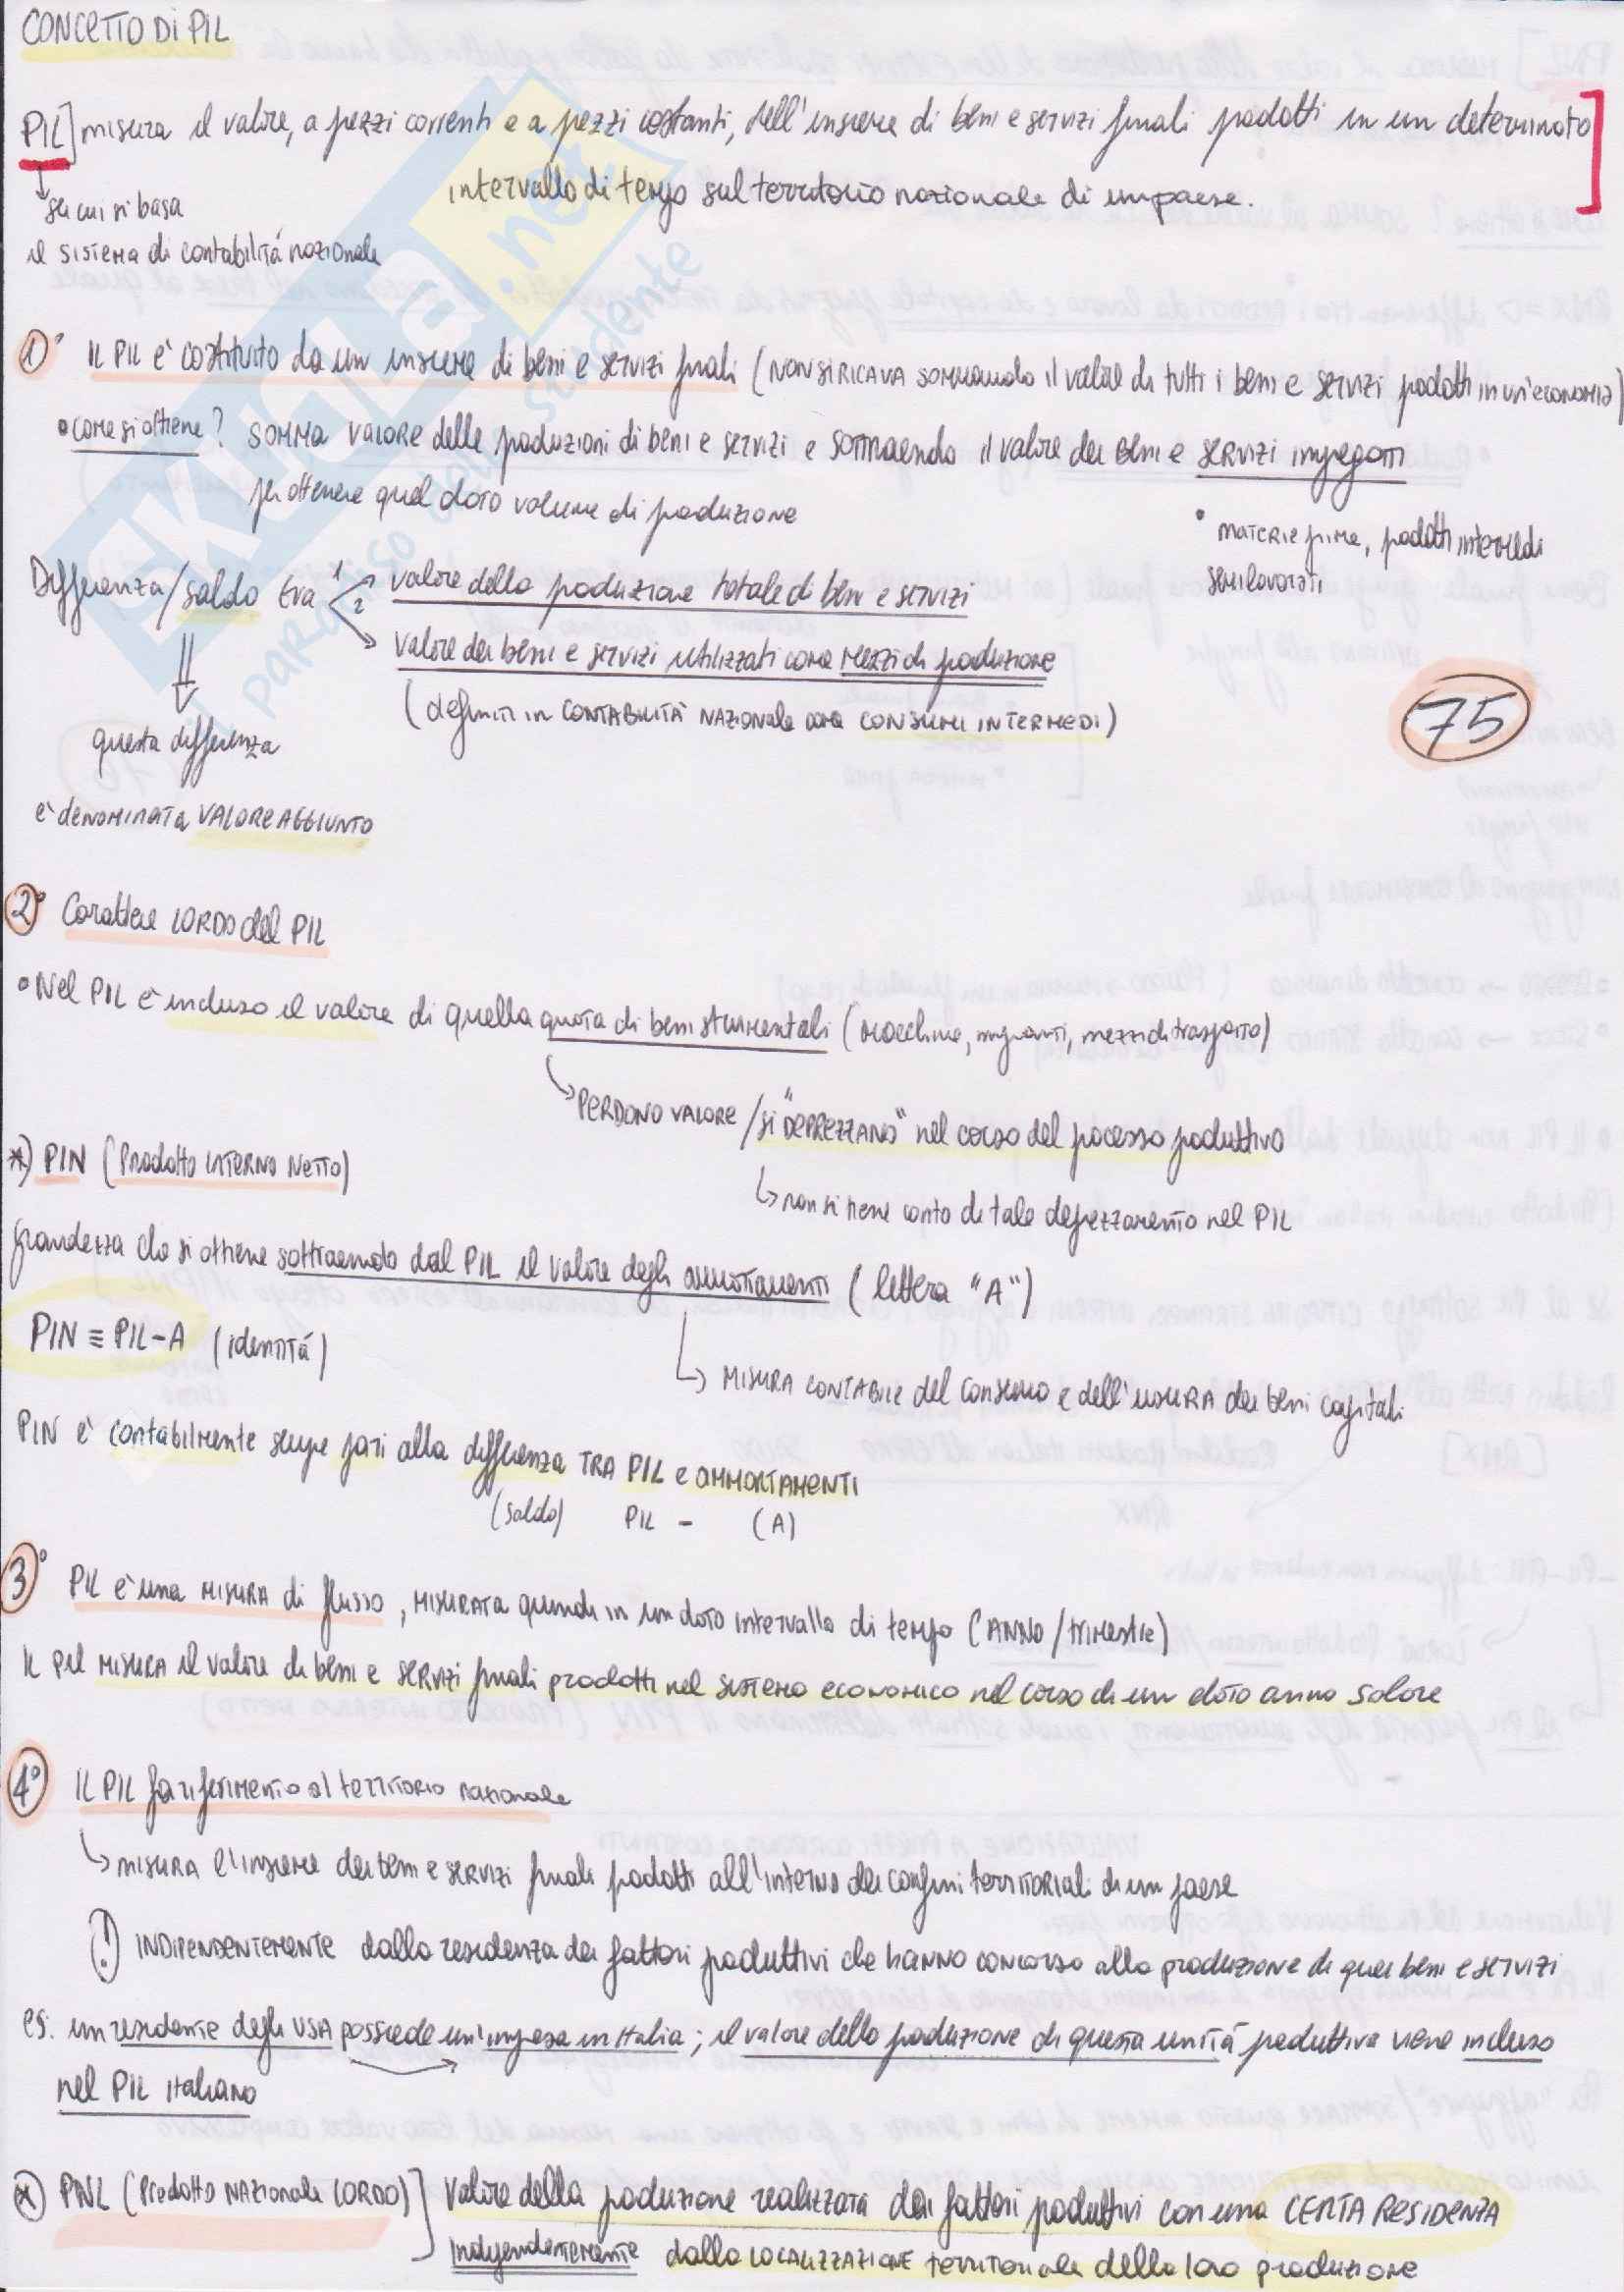 CONCETTO DI PIL
PIL] misura il valore, a prezzi correnti e a prezzi costanti, dell'insieme di beni e servizi finali prodotti in un determinato]
intervallo di tempo sul territorio nazionale di un paese.
↓ su cui si basa
il sistema di contabilità nazionale
1° IL PIL è costituito da un insieme di beni e servizi finali (NON SI RICAVA SOMMANDO il valore di tutti i beni e servizi prodotti in un'economia)
• come si ottiene? SOMMA VALORE delle produzioni di beni e servizi e SOTTRAENDO il valore dei beni e SERVIZI impiegati
per ottenere quel dato volume di produzione
• MATERIE prime, prodotti intermedi
semilavorati
Differenza/saldo tra 1 valore della produzione totale di beni e servizi
2 valore dei beni e servizi utilizzati come mezzi di produzione
(definiti in CONTABILITÀ NAZIONALE come CONSUMI INTERMEDI)
75
questa differenza
è denominata VALORE AGGIUNTO
2° Carattere LORDO del PIL
• Nel PIL è incluso il valore di quella quota di beni strumentali (macchine, impianti, mezzi di trasporto)
↳ PERDONO VALORE / si "DEPREZZANO" nel corso del processo produttivo
↳ non si tiene conto di tale deprezzamento nel PIL
*) PIN (Prodotto INTERNO NETTO)
grandezza che si ottiene sottraendo dal PIL il valore degli ammortamenti (lettera "A")
PIN ≡ PIL-A (identità)
↳ MISURA CONTABILE del consumo e dell'USURA dei beni capitali
PIN è contabilmente sempre pari alla differenza TRA PIL e AMMORTAMENTI
(saldo) PIL - (A)
3° PIL è una MISURA di flusso, MISURATA quindi in un dato intervallo di tempo (ANNO/trimestre)
IL PIL MISURA il valore di beni e SERVIZI finali prodotti nel sistema economico nel corso di un dato anno solare
4° IL PIL fa riferimento al territorio nazionale
↳ MISURA l'insieme dei beni e servizi finali prodotti all'interno dei confini territoriali di un paese
(!) INDIPENDENTEMENTE dalla residenza dei fattori produttivi che hanno concorso alla produzione di quei beni e servizi
es. un residente degli USA possiede un'impresa in Italia; il valore della produzione di questa unità produttiva viene incluso
nel PIL italiano
*) PNL (Prodotto NAZIONALE LORDO)] Valore della produzione realizzata dai fattori produttivi con una CERTA RESIDENZA
Indipendentemente dalla LOCALIZZAZIONE territoriale della loro produzione
SKUOLA.net
il paradiso dello studente